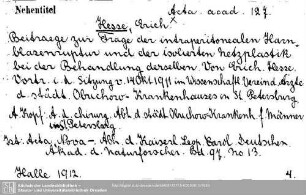 Nebentitel Acta acad. 127.
Hesse, Erich
Beitraege zur Frage der intraperitonealen Harn
blasenruptur und der isolierten Netzplastik
bei der Behandlung derselben Von Erich Hesse
Vortr. i. d. Sitzung v. 14 Okt 1911 in Wissenschaftl Vereind. Aerzte
d städt Obuchow-Krankenhauses in St. Petersburg
A Kopf: A d. chirurg. Abt d städt Obuchow-Krankenh f Männer
in St Petersburg
Ist: Acta, Nova - Abh. d. Kaiserl. Leop. Carol. Deutschen
Akad. d. Naturforscher. Bd. 97. No 13.
Halle 1912. 4.